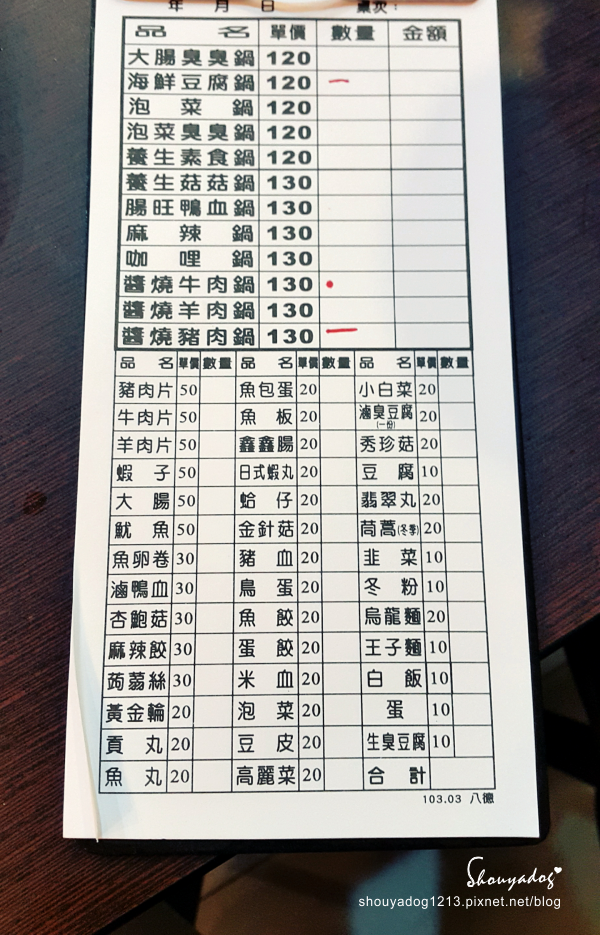 年 月 日 桌次：
品 名 單價 數量 金額
大腸臭臭鍋 120
海鮮豆腐鍋 120 一
泡菜鍋 120
泡菜臭臭鍋 120
養生素食鍋 120
養生菇菇鍋 130
腸旺鴨血鍋 130
麻辣鍋 130
咖哩鍋 130
醬燒牛肉鍋 130
醬燒羊肉鍋 130
醬燒豬肉鍋 130 一
品 名 單價 數量 品 名 單價 數量 品 名 單價 數量
豬肉片 50 魚包蛋 20 小白菜 20
牛肉片 50 魚板 20 滷臭豆腐(一份) 20
羊肉片 50 鑫鑫腸 20 秀珍菇 20
蝦子 50 日式蝦丸 20 豆腐 10
大腸 50 蛤仔 20 翡翠丸 20
魷魚 50 金針菇 20 茼蒿(冬季) 20
魚卵卷 30 豬血 20 韭菜 10
滷鴨血 30 鳥蛋 20 冬粉 10
杏鮑菇 30 魚餃 20 烏龍麵 20
麻辣餃 30 蛋餃 20 王子麵 10
蒟蒻絲 30 米血 20 白飯 10
黃金輪 20 泡菜 20 蛋 10
貢丸 20 豆皮 20 生臭豆腐 10
魚丸 20 高麗菜 20 合計
103.03 八德
Shouyadog
shouyadog1213.pixnet.net/blog